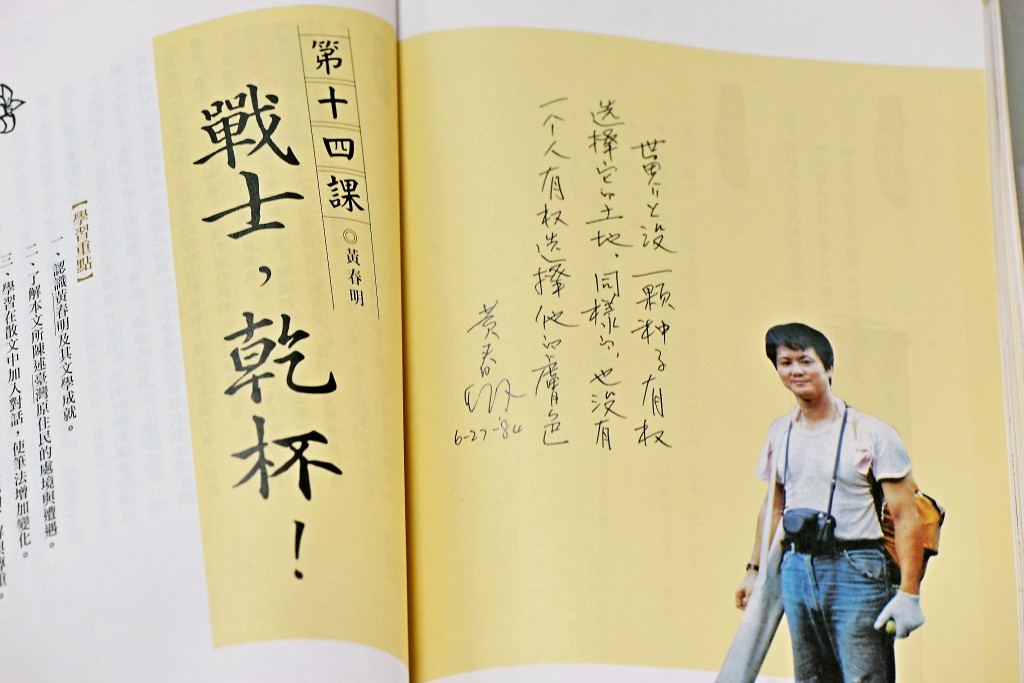 世界上没一颗种子有权
选择它的土地．同樣的，也没有
一个人有权选择他的膚色
黄春明
6-27-'84
第十四課
◎黃春明
戰士，乾杯！
【學習重點】
一、認識黃春明及其文學成就。
二、了解本文所陳述臺灣原住民的處境與遭遇。
三、學習在散文中加入對話，使筆法增加變化。